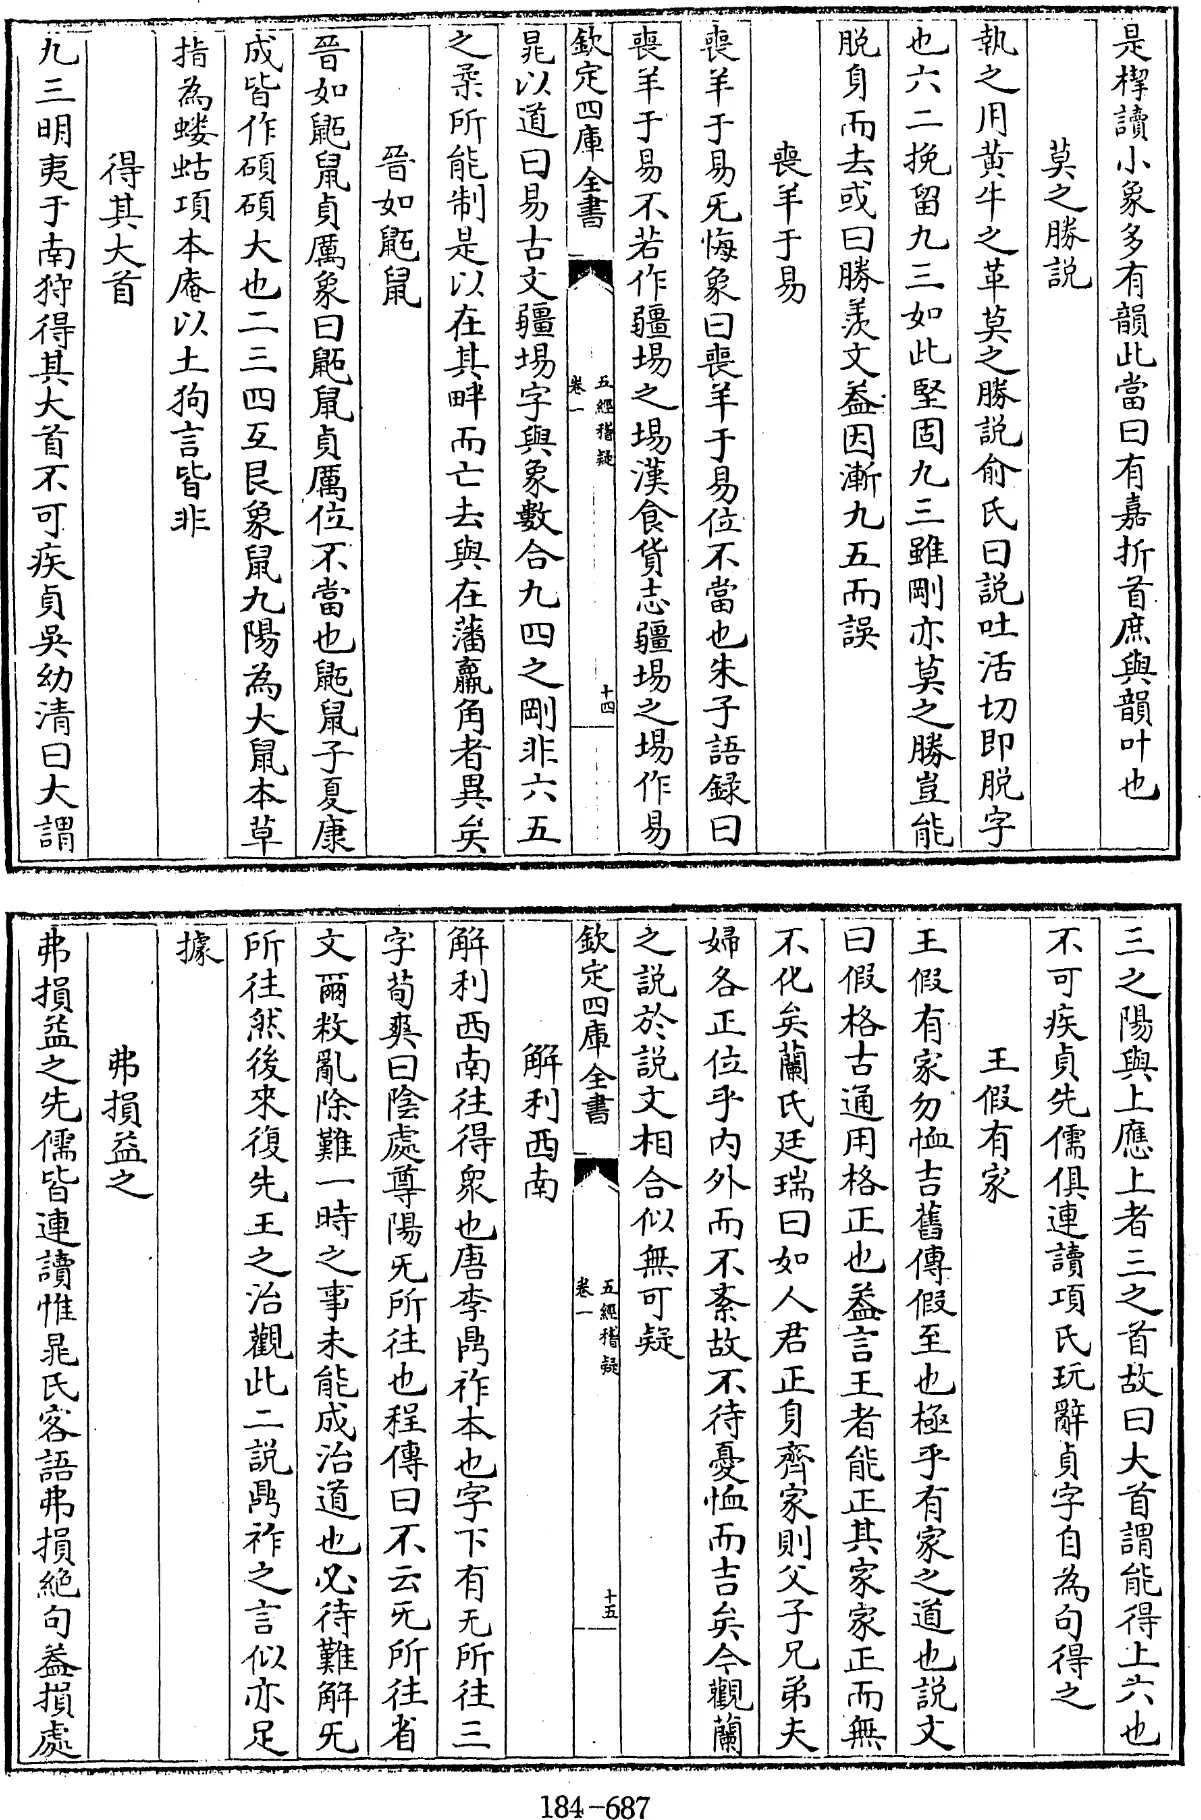 是樨讀小象多有韻此當曰有嘉折首庶與韻叶也
莫之勝説
執之用黄牛之革莫之勝説俞氏曰説吐活切即脱字
也六二挽留九三如此堅固九三雖剛亦莫之勝豈能
脱身而去或曰勝羨文葢因漸九五而誤
喪羊于易
喪羊于易旡悔象曰喪羊于易位不當也朱子語録曰
喪羊于易不若作疆場之埸漢食貨志疆埸之埸作易
欽定四庫全書
五經稽疑
卷一
十四
晁以道曰易古文疆埸字與象數合九四之剛非六五
之柔所能制是以在其畔而亡去與在藩羸角者異矣
晉如鼫鼠
晉如鼫鼠貞厲象曰鼫鼠貞厲位不當也鼫鼠子夏康
成皆作碩碩大也二三四互艮象鼠九陽為大鼠本草
指為螻蛄項本庵以土狗言皆非
得其大首
九三明夷于南狩得其大首不可疾貞吳幼清曰大謂
三之陽與上應上者三之首故曰大首謂能得上六也
不可疾貞先儒俱連讀項氏玩辭貞字自為句得之
王假有家
王假有家勿恤吉舊傳假至也極乎有家之道也説文
曰假格古通用格正也葢言王者能正其家家正而無
不化矣蘭氏廷瑞曰如人君正身齊家則父子兄弟夫
婦各正位乎内外而不紊故不待憂恤而吉矣今觀蘭
之説於説文相合似無可疑
欽定四庫全書
五經稽疑
卷一
十五
解利西南
解利西南往得衆也唐李鼎祚本也字下有无所往三
字荀爽曰陰處尊陽旡所往也程傳曰不云旡所往省
文爾救亂除難一時之事未能成治道也必待難解旡
所往然後來復先王之治觀此二説鼎祚之言似亦足
據
弗損益之
弗損益之先儒皆連讀惟晁氏客語弗損絶句益損處
184-687